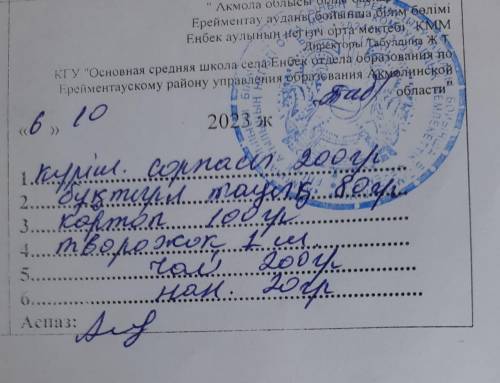 " Акмола облысы білім
Ерейментау ауданы бойынша білім бөлімі
Еңбек ауылының негізгі орта мектебі" КММ
Директоры Табулдина Ж Т
КГУ "Основная средняя школа села Енбек отдела образования по
Ерейментаускому району управления образования Акмолинской
области
«6» 10 2023 ж
1. күріш. сорпасы 200гр
2. бұқтырл тауық. 80гр.
3. картоп 100гр
4. творожок 1 ш.
5. чай 200гр
6. нан. 20гр
Аспаз: